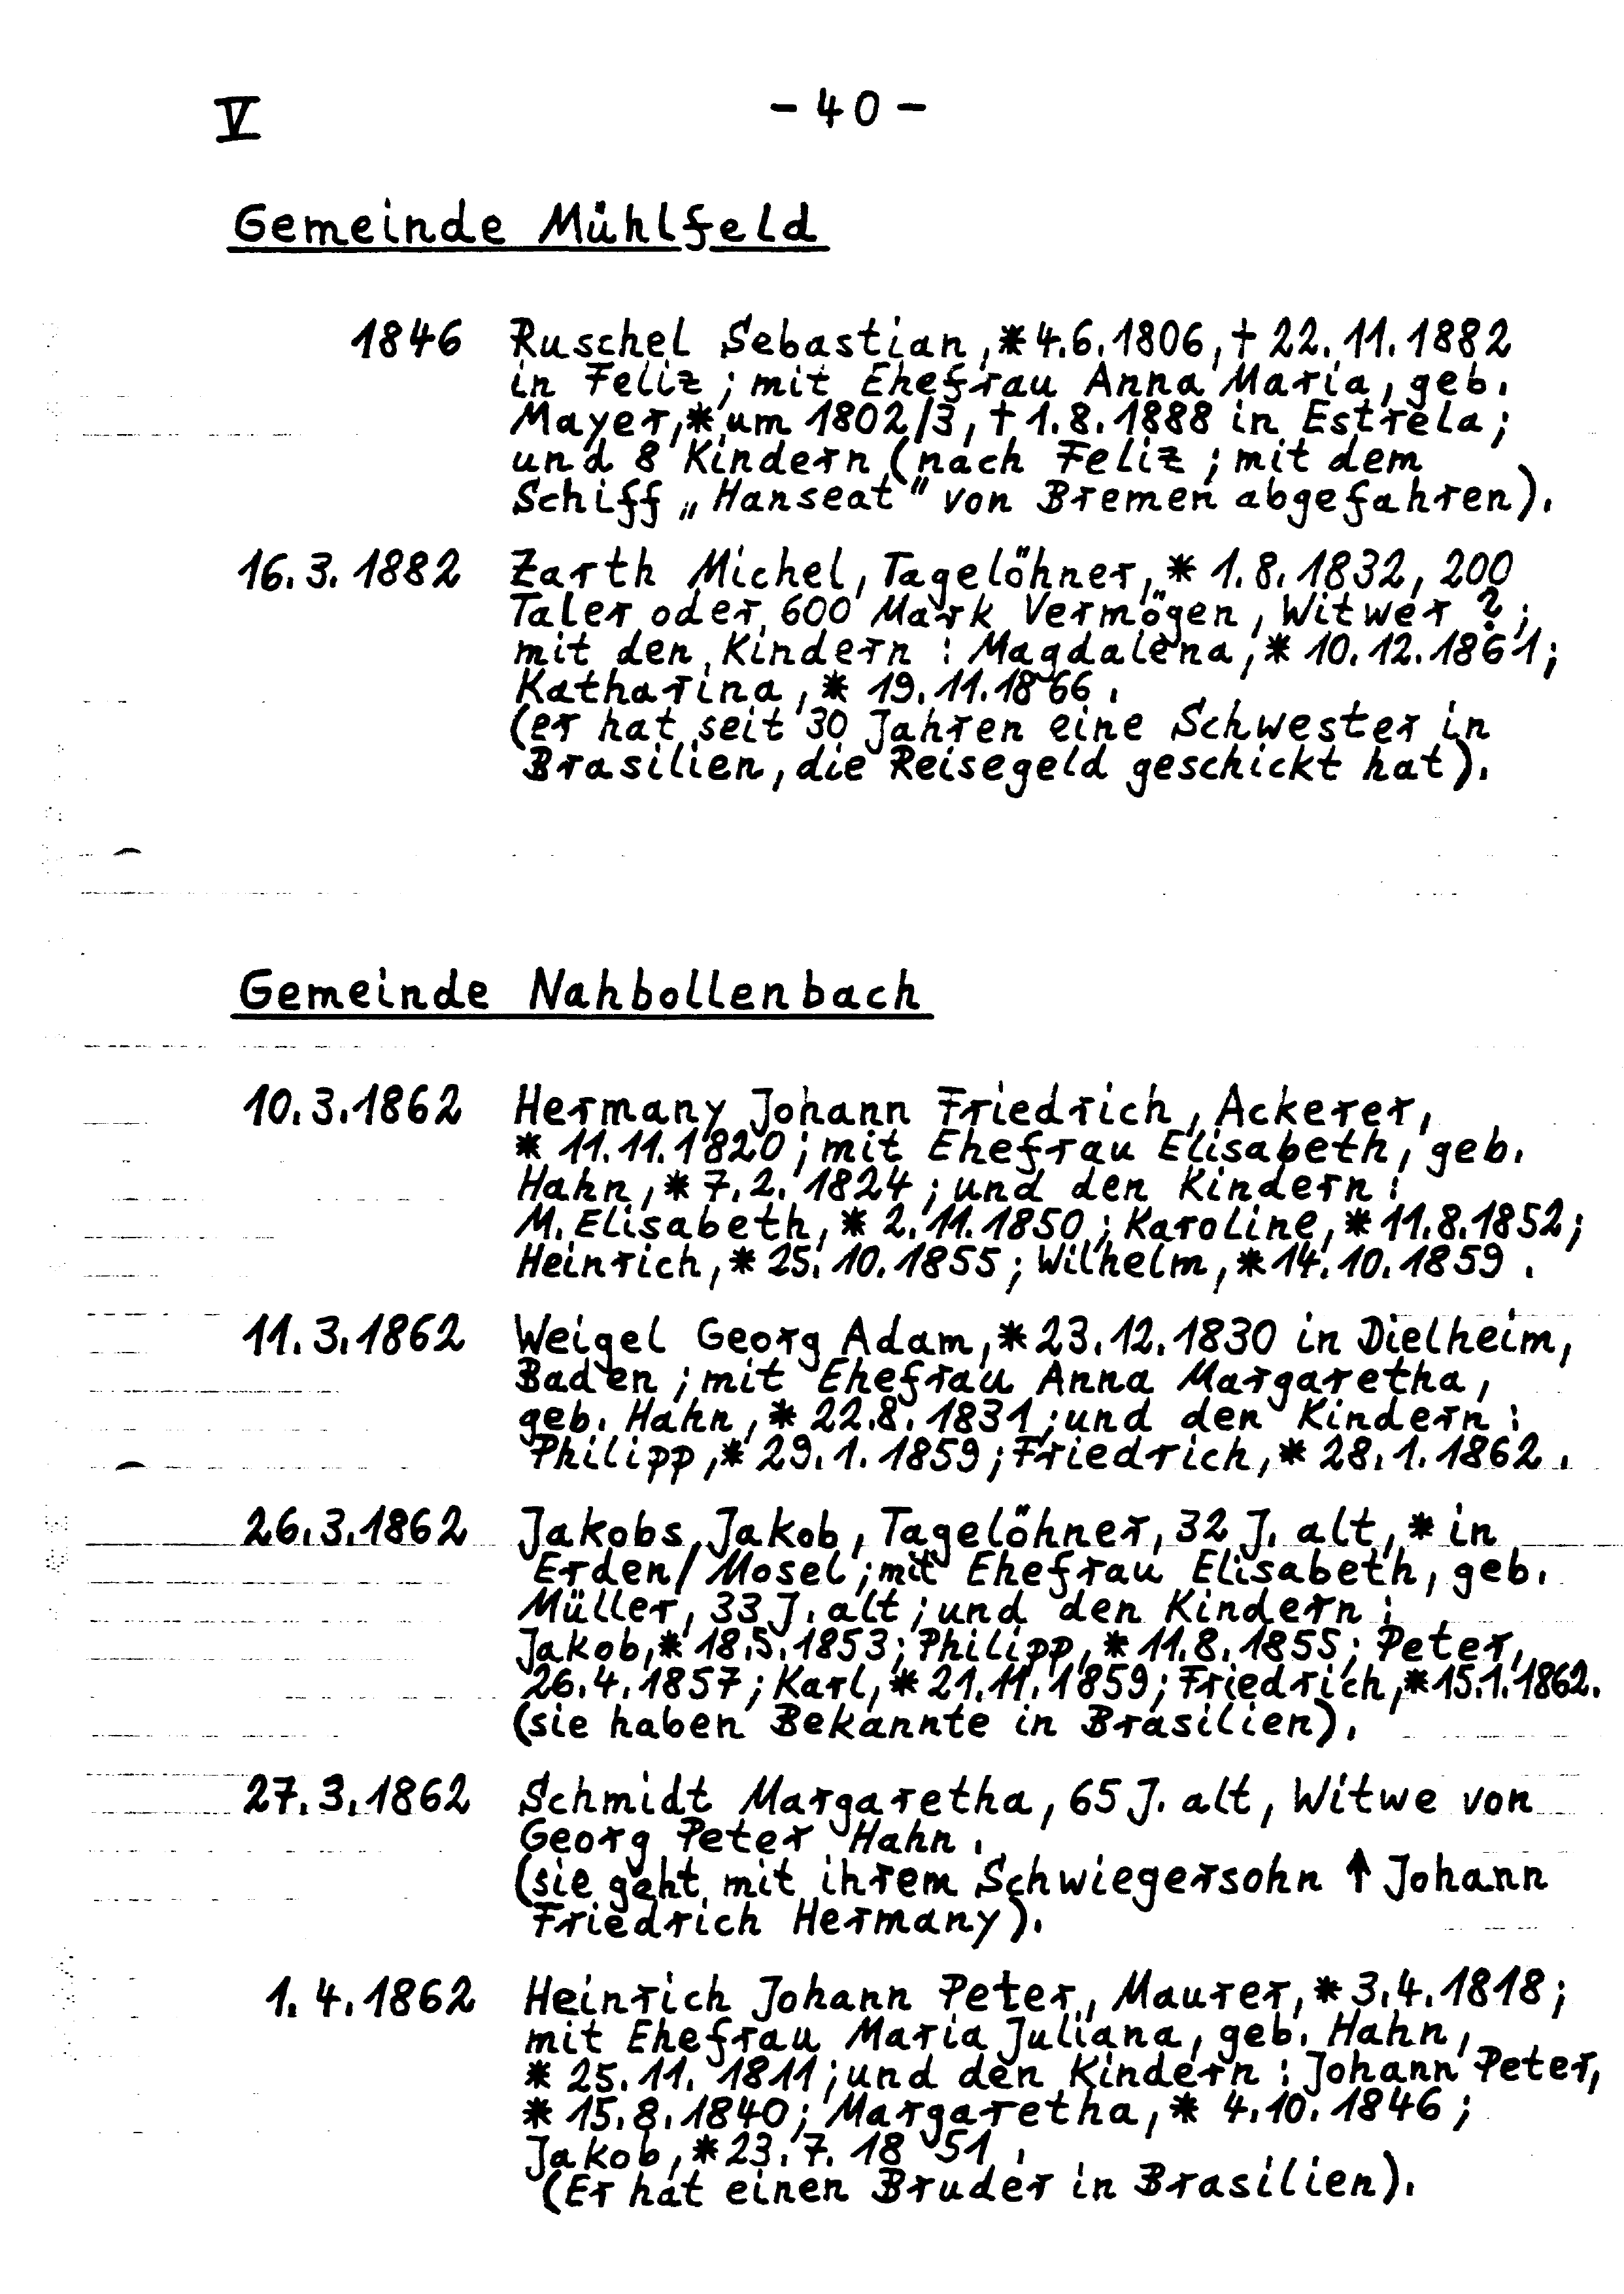 V
- 40 -
Gemeinde Mühlfeld
1846 Ruschel Sebastian, * 4.6.1806, † 22.11.1882
in Feliz; mit Ehefrau Anna Maria, geb.
Mayer, * um 1802/3, † 1.8.1888 in Estrêla;
und 8 Kindern (nach Feliz; mit dem
Schiff „Hanseat" von Bremen abgefahren).
16.3.1882 Zarth Michel, Tagelöhner, * 1.8.1832, 200
Taler oder 600 Mark Vermögen, Witwer ?;
mit den Kindern: Magdalena, * 10.12.1861;
Katharina, * 19.11.1866.
(er hat seit 30 Jahren eine Schwester in
Brasilien, die Reisegeld geschickt hat).
Gemeinde Nahbollenbach
10.3.1862 Hermany Johann Friedrich, Ackerer,
* 11.11.1820; mit Ehefrau Elisabeth, geb.
Hahn, * 7.2.1824; und den Kindern:
M. Elisabeth, * 2.11.1850; Karoline, * 11.8.1852;
Heinrich, * 25.10.1855; Wilhelm, * 14.10.1859.
11.3.1862 Weigel Georg Adam, * 23.12.1830 in Dielheim,
Baden; mit Ehefrau Anna Margaretha,
geb. Hahn, * 22.8.1831; und den Kindern:
Philipp, * 29.1.1859; Friedrich, * 28.1.1862.
26.3.1862 Jakobs Jakob, Tagelöhner, 32 J. alt, * in
Erden/Mosel; mit Ehefrau Elisabeth, geb.
Müller, 33 J. alt; und den Kindern:
Jakob, * 18.5.1853; Philipp, * 11.8.1855; Peter,
26.4.1857; Karl, * 21.11.1859; Friedrich, * 15.1.1862.
(sie haben Bekannte in Brasilien).
27.3.1862 Schmidt Margaretha, 65 J. alt, Witwe von
Georg Peter Hahn.
(sie geht mit ihrem Schwiegersohn ↑ Johann
Friedrich Hermany).
1.4.1862 Heinrich Johann Peter, Maurer, * 3.4.1818;
mit Ehefrau Maria Juliana, geb. Hahn,
* 25.11.1811; und den Kindern: Johann Peter,
* 15.8.1840; Margaretha, * 4.10.1846;
Jakob, * 23.7.1851.
(Er hat einen Bruder in Brasilien).